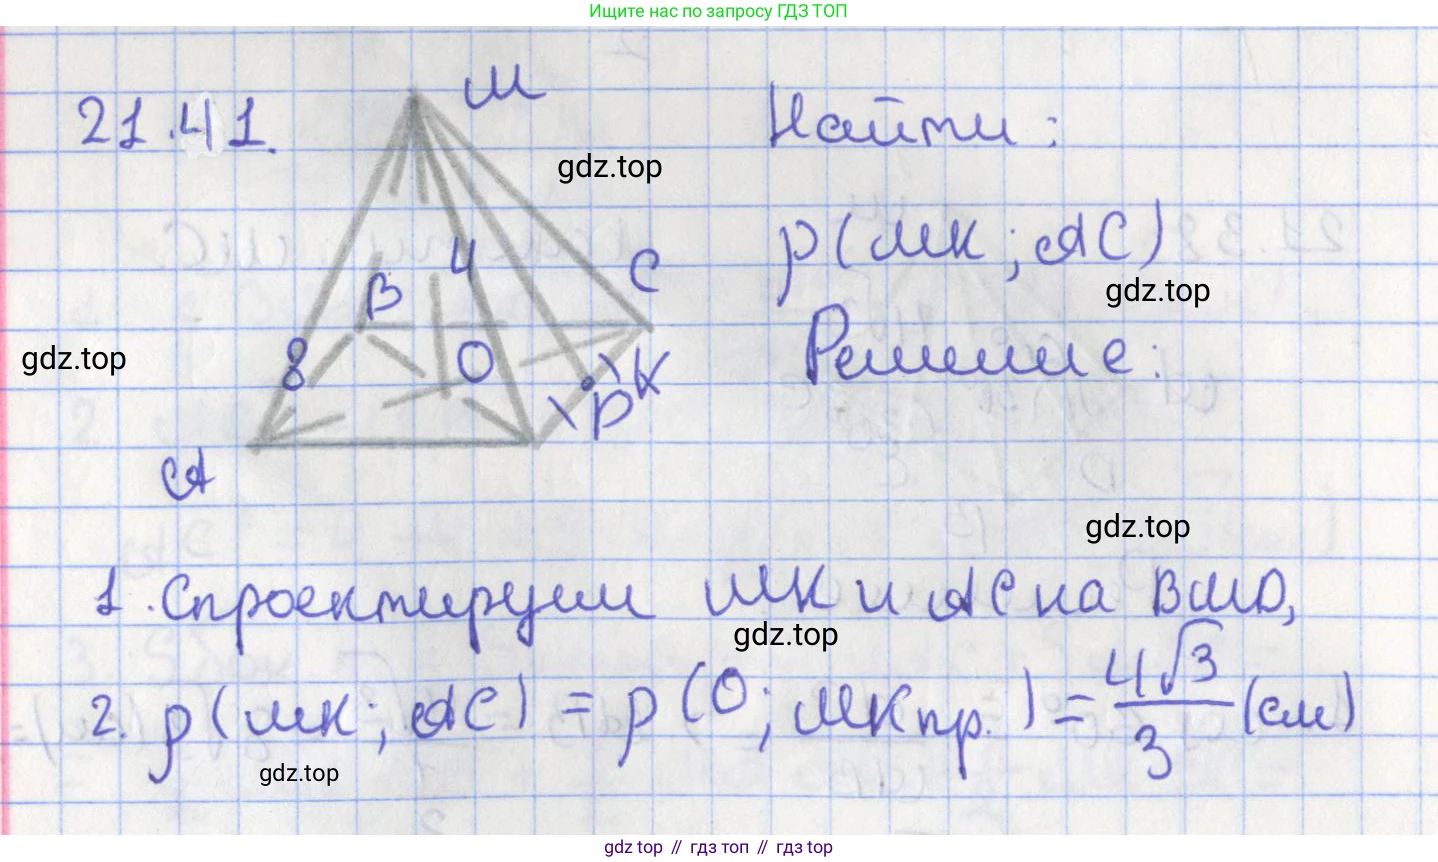 Ищите нас по запросу ГДЗ ТОП
21.41.
M
Найти:
gdz.top
ρ(MK; AC)
4
C
B
gdz.top
Решение:
gdz.top
8
O
K
P
A
gdz.top
1. Спроектируем MK и AC на BMD,
gdz.top
2. ρ(MK; AC) = ρ(O; MKпр.) = 4√3/3 (см)
gdz.top
gdz top // гдз топ // гдз top